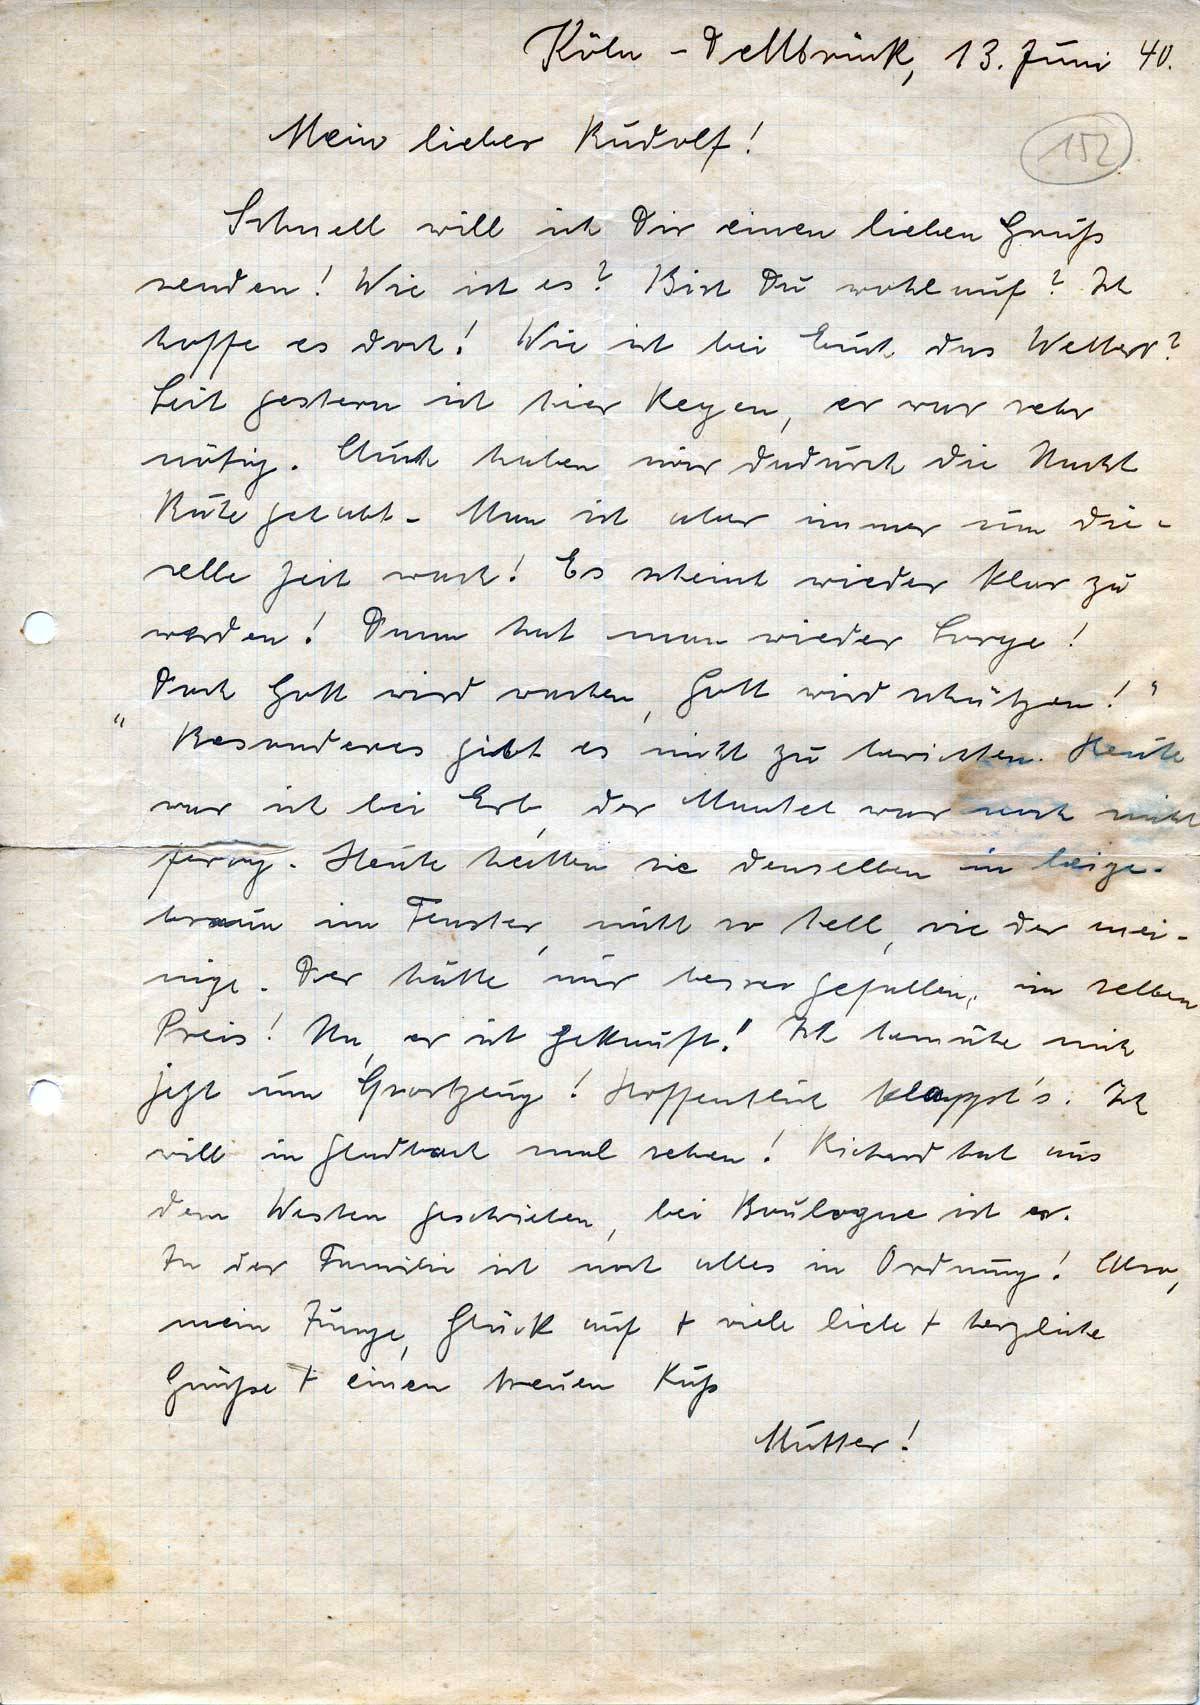 Köln-Dellbrück, 13. Juni 40.
152
Mein lieber Rudolf!
Schnell will ich Dir einen lieben Gruß
senden! Wie ist es? Bist Du wohlauf? Ich
hoffe es doch! Wie ist bei Euch das Wetter?
Seit gestern ist hier Regen, er war sehr
nötig. Auch haben wir dadurch die Nacht
Ruhe gehabt. Man ist aber immer um die-
selbe Zeit wach! Es scheint wieder klar zu
werden! Dann hat man wieder Sorge!
Doch Gott wird wachen, Gott wird schützen!"
" Besonderes gibt es nicht zu berichten. Heute
war ich bei Erb, der Mantel war noch nicht
fertig. Heute hatten sie denselben in beige-
braun im Fenster, nicht so hell, wie der mei-
nige. Der hätte mir besser gefallen, im selben
Preis! Na, er ist gekauft! Ich bemühe mich
jetzt um Sportzeug! Hoffentlich klappt's. Ich
will in Gladbach mal sehen! Richard hat aus
dem Westen geschrieben, bei Boulogne ist er.
In der Familie ist noch alles in Ordnung! Also,
mein Junge, Glück auf + viele liebe + herzliche
Grüße + einen treuen Kuß
Mutter!